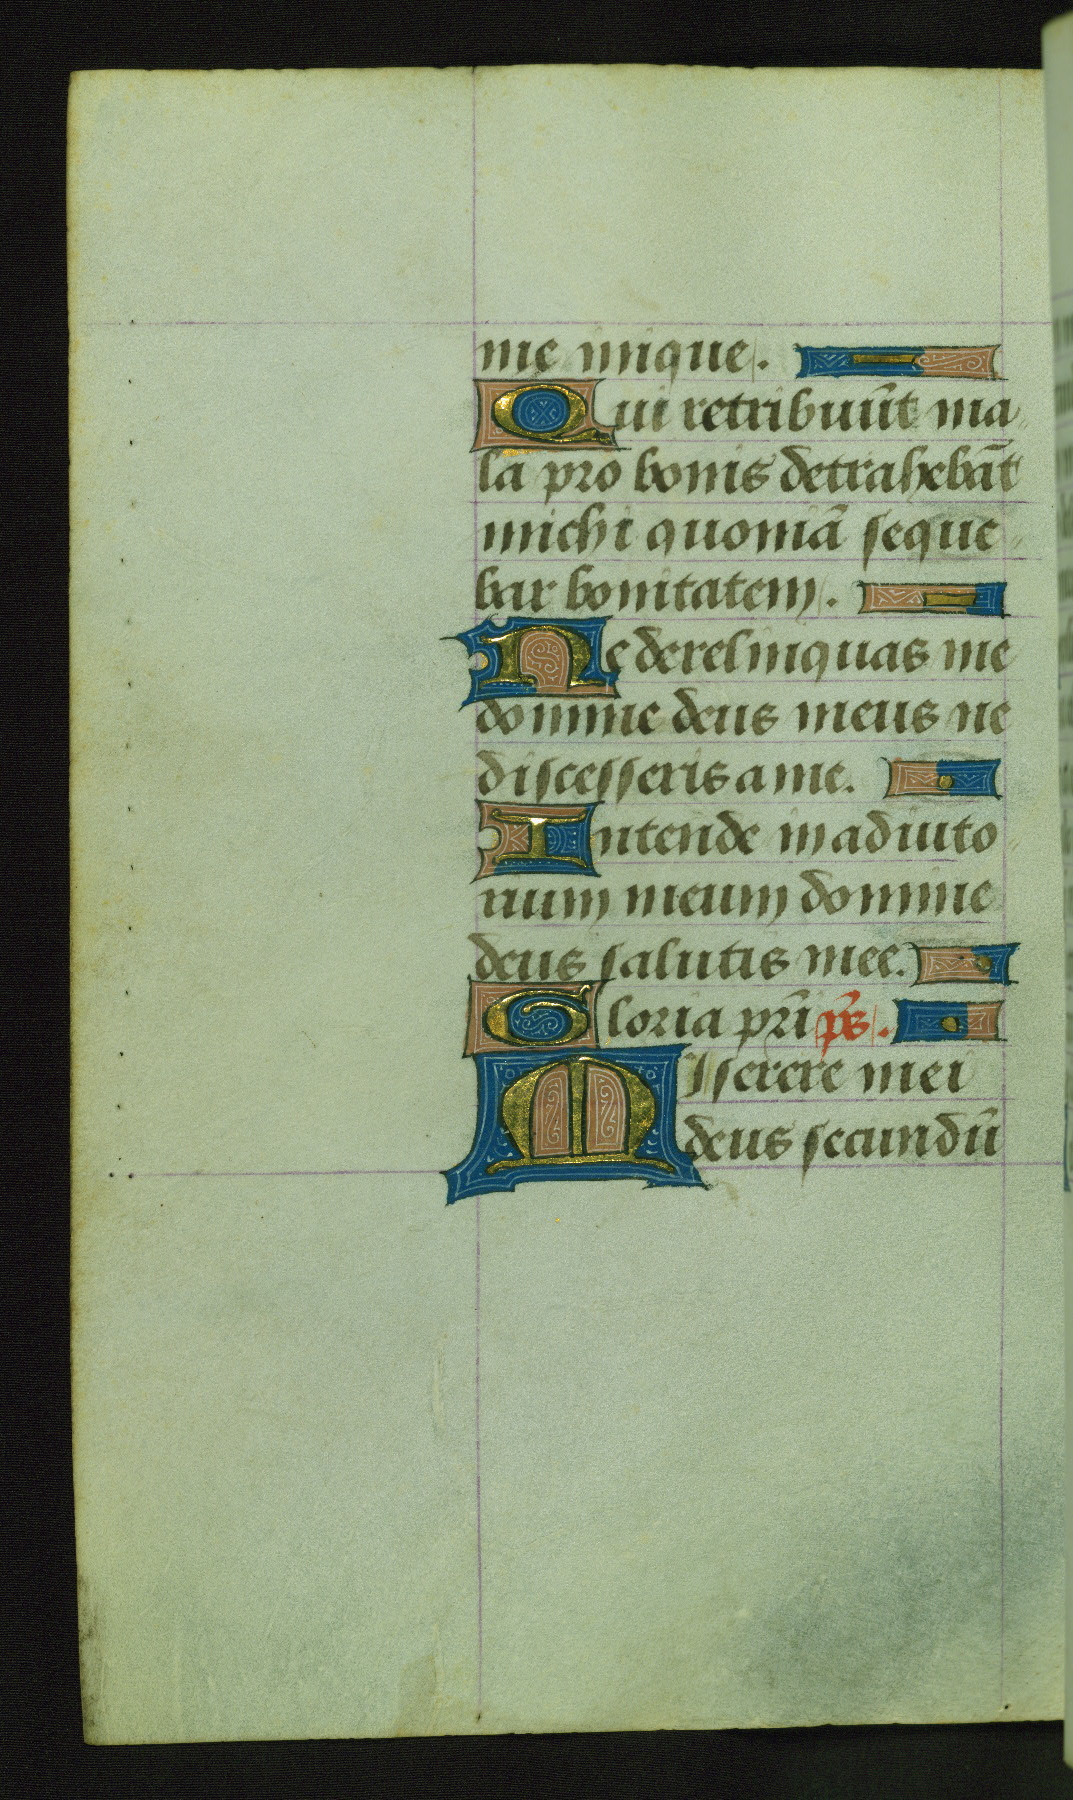 me inique.
Qui retribuūt ma-
la pro bonis detrahebāt
michi quoniā seque-
bar bonitatem.
Ne derelinquas me
domine deus meus ne
discesseris a me.
Intende in adiuto-
rium meum domine
deus salutis mee.
Gloria pr̄i pš.
Miserere mei
deus secundū